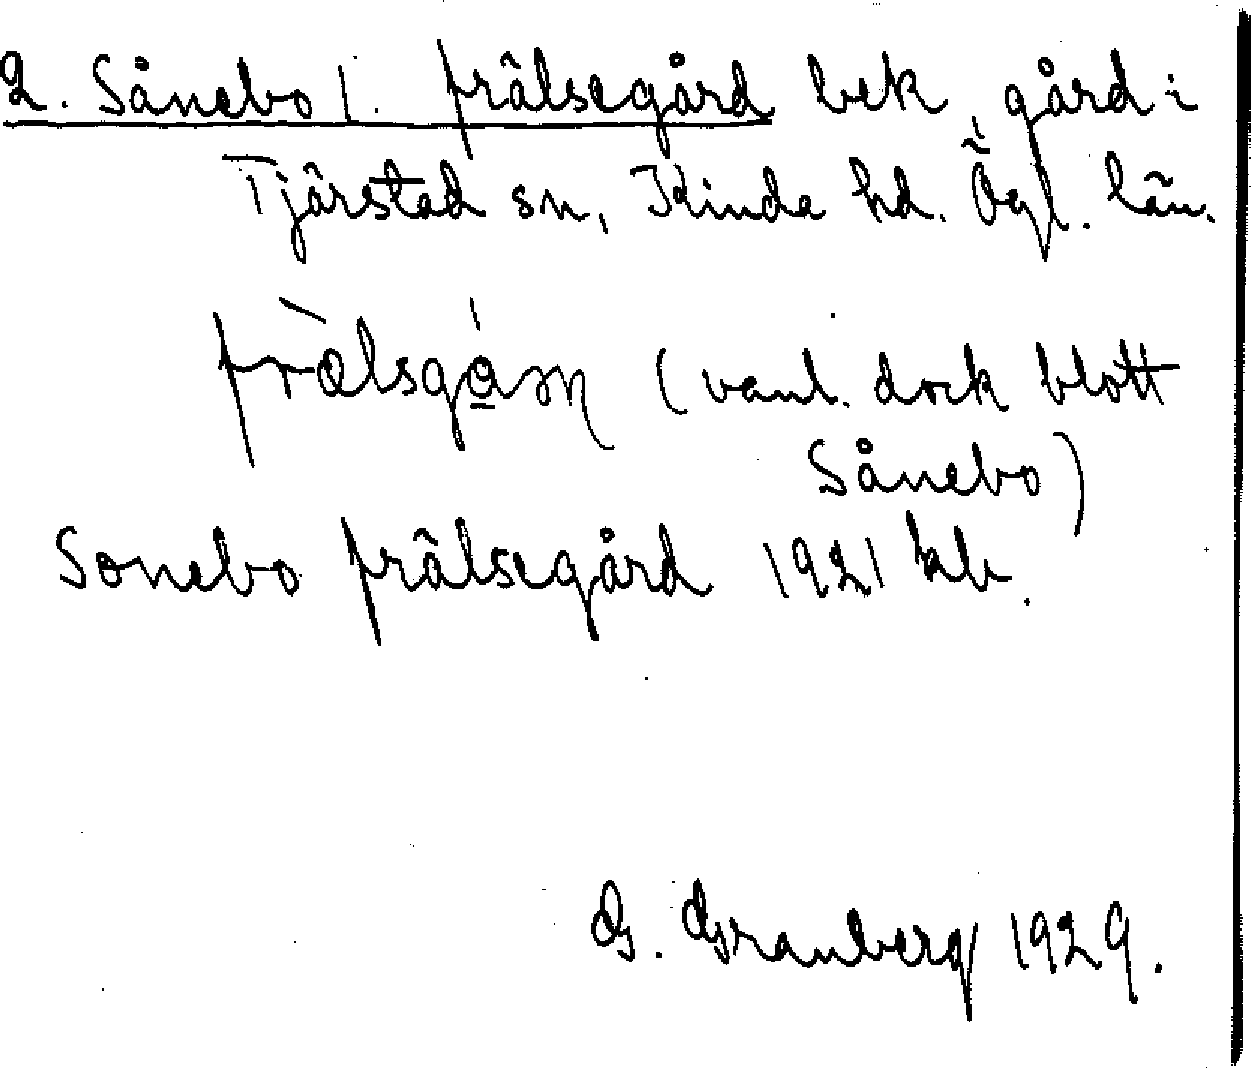 2. Sånebo l. frälsegård bek gård i
Tjärstad sn, Kinda hd. Ögl. län.
(vanl. dock blott
Sånebo)
Sonebo frälsegård 1921 kb.
G. Granberg 1929.